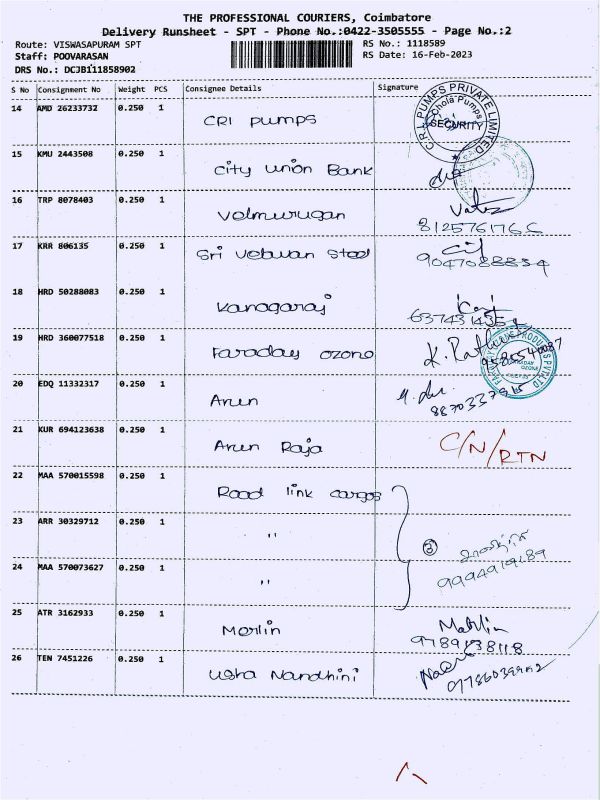 THE PROFESSIONAL COURIERS, Coimbatore
Delivery Runsheet - SPT - Phone No.:0422-3505555 - Page No.:2
Route: VISWASAPURAM SPT RS No.: 1118589
Staff: POOVARASAN RS Date: 16-Feb-2023
DRS No.: DCJB111858902
S No Consignment No Weight PCS Consignee Details Signature
14 AMD 26233732 0.250 1 CRI Pumps
C.R.I. PUMPS PRIVATE LIMITED
Chola Pumps
SECURITY
15 KMU 2443508 0.250 1 City Union Bank
16 TRP 8078403 0.250 1 Velmurugan
8125761766
17 KRR 806135 0.250 1 Sri Velavan Steel
9047088834
18 HRD 50288083 0.250 1 Kanagaraj
19 HRD 360077518 0.250 1 Faraday Ozono
20 EDQ 11332317 0.250 1 Arun
21 KUR 694123638 0.250 1 Arun Raja C/N/RTN
22 MAA 570015598 0.250 1 Road link cargos
23 ARR 30329712 0.250 1 " ③
24 MAA 570073627 0.250 1 "
25 ATR 3162933 0.250 1 Merlin Merlin
9789138118
26 TEN 7451226 0.250 1 Usha Nandhini